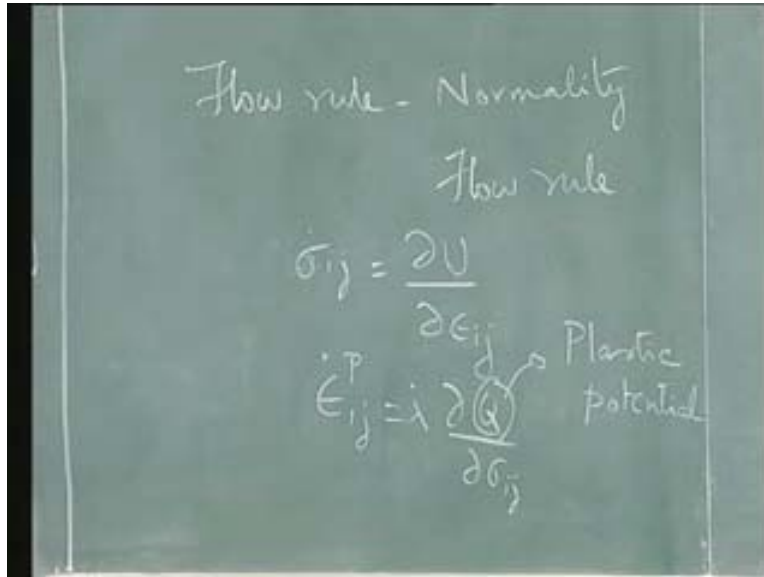 Flow rule - Normality
Flow rule
σ̇ij = ∂U / ∂ϵij
ϵ̇ᵖij = λ̇ ∂Q / ∂σij → Plastic potential